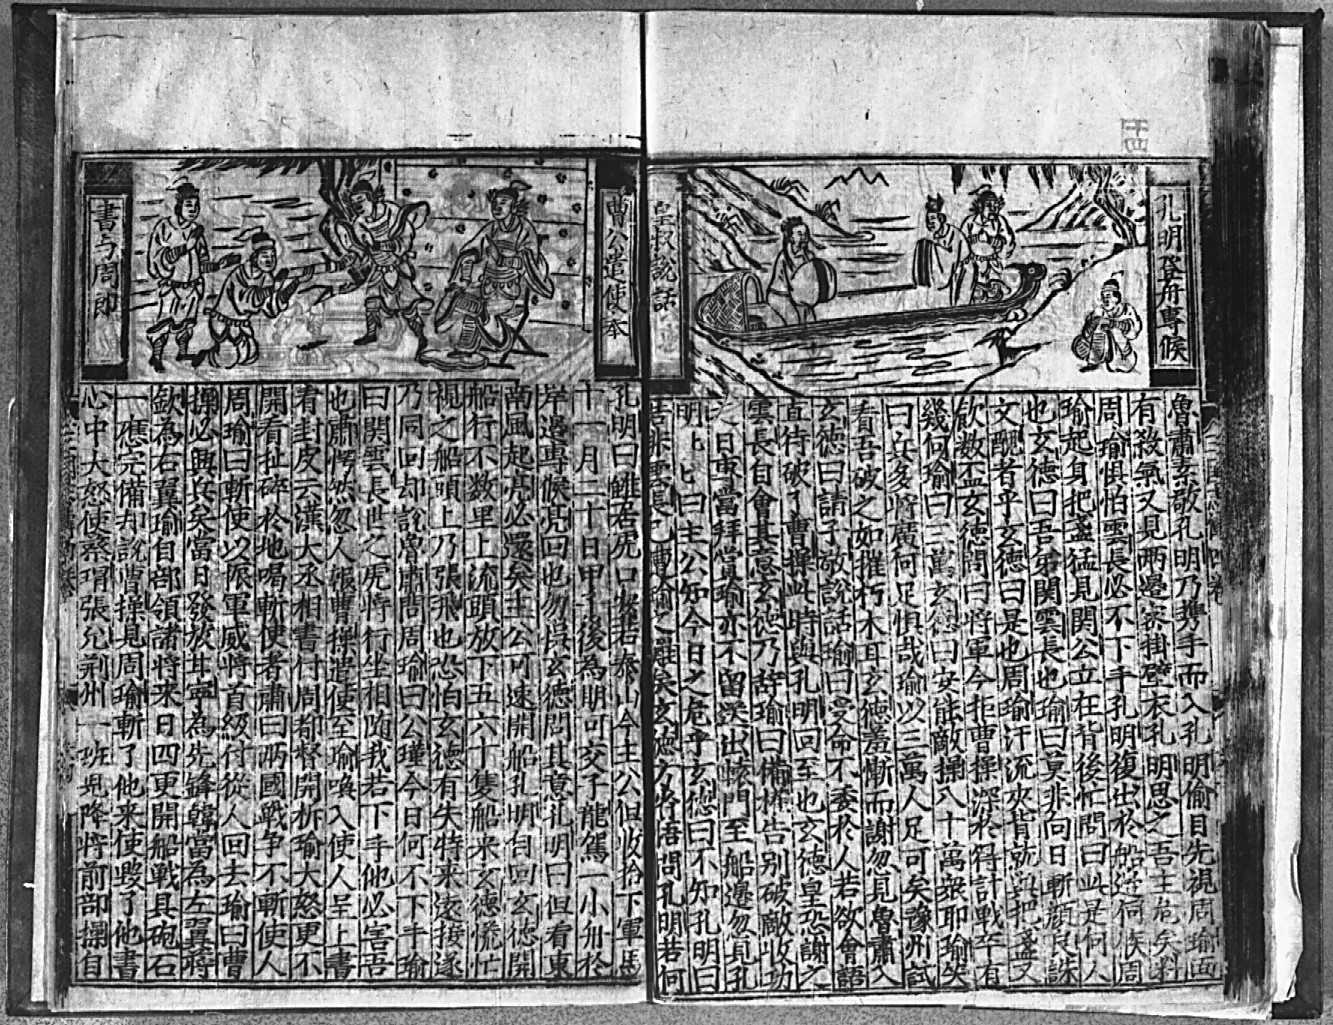 孔明登舟專候
皇叔說話
魯肅素敬孔明乃携手而入孔明偷目先視周瑜面
有殺氣又見兩邊密掛壁衣孔明思之吾主危矣料
周瑜惧怕雲長必不下手孔明復出於船邊伺候周
瑜起身把盞猛見関公立在背後忙問曰此是何人
也玄德曰吾弟関雲長也瑜曰莫非向日斬顏良誅
文醜者乎玄德曰是也周瑜汗流夾背就與把盞又
飲数盃玄德問曰將軍今拒曹操深於得計戰卒有
幾何瑜曰三萬玄德曰安能敵操八十萬衆耶瑜笑
曰兵多將廣何足惧哉瑜以三萬人足可矣豫州試
看吾破之如摧朽木耳玄德羞慚而謝忽見魯肅入
玄德曰請子敬說話瑜曰受命不委於人若欲會語
直待破了曹操此時與孔明回至也玄德皇恐謝之
雲長自會其意玄德乃辞瑜曰備權告别破敵收功
之日專當拜賞瑜亦不留送出轅門至船邊忽見孔
明匕匕曰主公知今日之危乎玄德曰不知孔明曰
若非雲長已遭瑜之難矣玄德方將悟問孔明若何
曹公遣使奉
書与周郎
孔明曰雖居虎口安若泰山今主公但收拾下軍馬
十一月二十日甲子後為期可交子龍駕一小舟於
岸邊專候亮回也勿悞玄德問其意孔明曰但看東
南風起亮必還矣主公可速開船孔明自回玄德開
船行不数里上流頭放下五六十隻船来玄德慌忙
視之船頭上乃張飛也恐怕玄德有失特来遠接遂
乃同回却說魯肅問周瑜曰公瑾今日何不下手瑜
曰関雲長世之虎將行坐相随我若下手他必害吾
也肅愕然忽人報曹操遣使至瑜喚入使人呈上書
看封皮云漢大丞相書付周都督開柝瑜大怒更不
開看扯碎於地喝斬使者肅曰兩國戰争不斬使人
周瑜曰斬使以振軍威將首級付從人回去瑜曰曹
操必興兵矣當日發放甘寧為先鋒韓當為左翼蔣
欽為右翼瑜自部領諸將来日四更開船戰具砲石
一應完備却說曹操見周瑜斬了他来使毀了他書
心中大怒使蔡瑁張允荊州一班皃降將前部操自